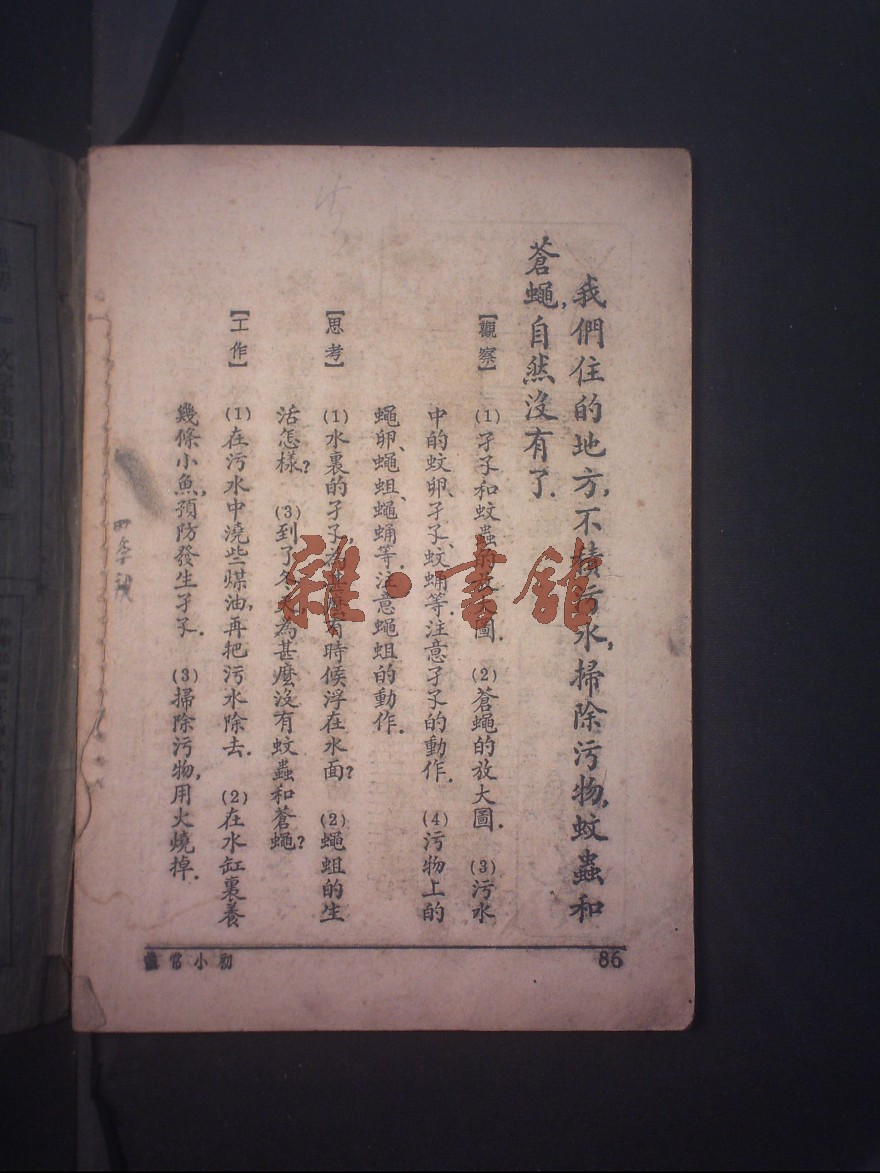 我們住的地方,不積污水,掃除污物,蚊蟲和
蒼蠅,自然沒有了.
【觀察】 (1)孑孓和蚊蟲的放大圖. (2)蒼蠅的放大圖. (3)污水
中的蚊卵、孑孓、蚊蛹等.注意孑孓的動作. (4)污物上的
蠅卵、蠅蛆、蠅蛹等.注意蠅蛆的動作.
【思考】 (1)水裏的孑孓,為甚麼有時候浮在水面? (2)蠅蛆的生
活怎樣? (3)到了冬天,為甚麼沒有蚊蟲和蒼蠅?
【工作】 (1)在污水中澆些煤油,再把污水除去. (2)在水缸裏養
幾條小魚,預防發生孑孓. (3)掃除污物,用火燒掉.
初小常識
86
雜·書館